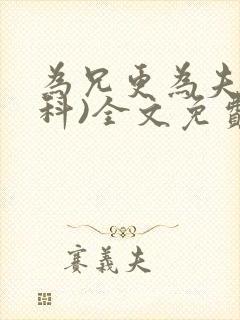 為兄更為夫
科)全文免費
賽義夫